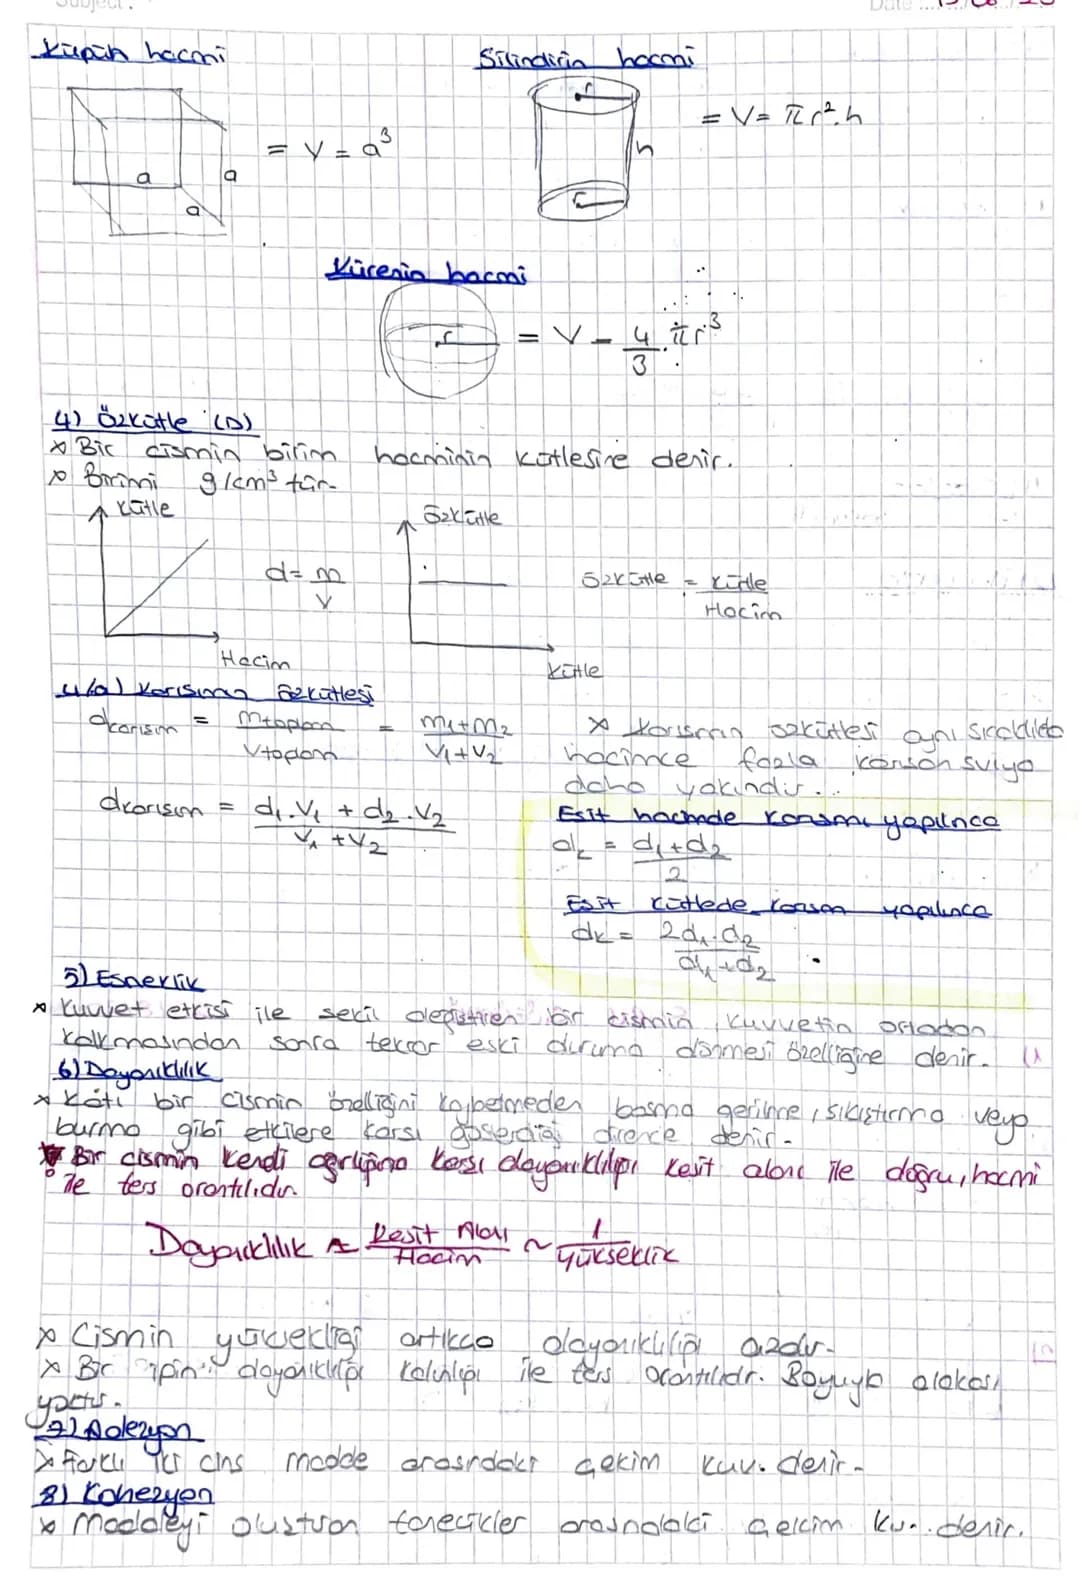 Subject:
Date
Küpün hacmi
Silindirin hacmi
r
= V = πr².h
= V = a³
h
a
a
a
r
Kürenin hacmi
r
= V = 4/3.πr³
4) Özkütle (D)
x Bir cismin birim hacminin kütlesine denir.
x Birimi g/cm³ tür.
Kütle
Özkütle
d = m/V
Özkütle = Kütle/Hacim
Hacim
Kütle
4/a) Karışımın özkütlesi
dkarışım = mtoplam/Vtoplam = m₁+m₂/V₁+V₂
x Karışımın özkütlesi aynı sıcaklıkta
hacimce fazla karışan sıvıya
daha yakındır...
dkarışım = d₁.V₁ + d₂.V₂/V₁+V₂
Eşit hacimde karışım yapılınca
dk = d₁+d₂/2
Eşit kütlede karışım yapılınca
dk = 2d₁.d₂/d₁+d₂
5) Esneklik
x Kuvvet etkisi ile şekil değiştiren bir cismin, kuvvetin ortadan
kalkmasından sonra tekrar eski duruma dönmesi özelliğine denir.
6) Dayanıklılık
x Katı bir cismin özelliğini kaybetmeden basma gerilme, sıkıştırma veya
burma gibi etkilere karşı gösterdiği dirence denir.
Bir cismin kendi ağırlığına karşı dayanıklılığı kesit alanı ile doğru, hacmi
ile ters orantılıdır.
Dayanıklılık ≈ Kesit Alanı/Hacim ~ 1/Yükseklik
x Cismin yüksekliği artıkca dayanıklılığı azalır.
x Bir ipin dayanıklılığı kalınlığı ile ters orantılıdır. Boyuyla alakası
yoktur.
7) Adezyon
x Farklı iki cins madde arasındaki çekim kuv. denir.
8) Kohezyon
x Maddeyi oluşturan tanecikler arasındaki çekim kuv. denir.